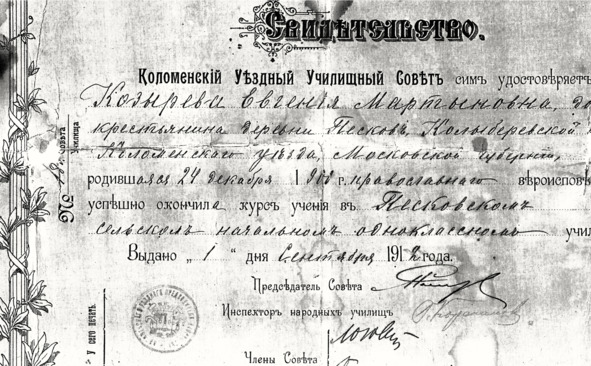 Свидѣтельство.
Коломенскій Уѣздный Училищный Совѣтъ симъ удостовѣряетъ
Козырева Евгенія Мартыновна, до
крестьянина деревни Песковъ, Колыберевской
Коломенскаго уѣзда, Московской губерніи,
родившаяся 24 декабря 1900 г. православнаго вѣроиспов
успѣшно окончила курсъ ученія въ Песковскомъ
сельскомъ начальномъ одноклассномъ учи
Выдано „1“ дня Сентября 1912 года.
Предсѣдатель Совѣта
Инспекторъ народныхъ училищъ
Члены Совѣта
У сего печать.
№
совѣта
училища